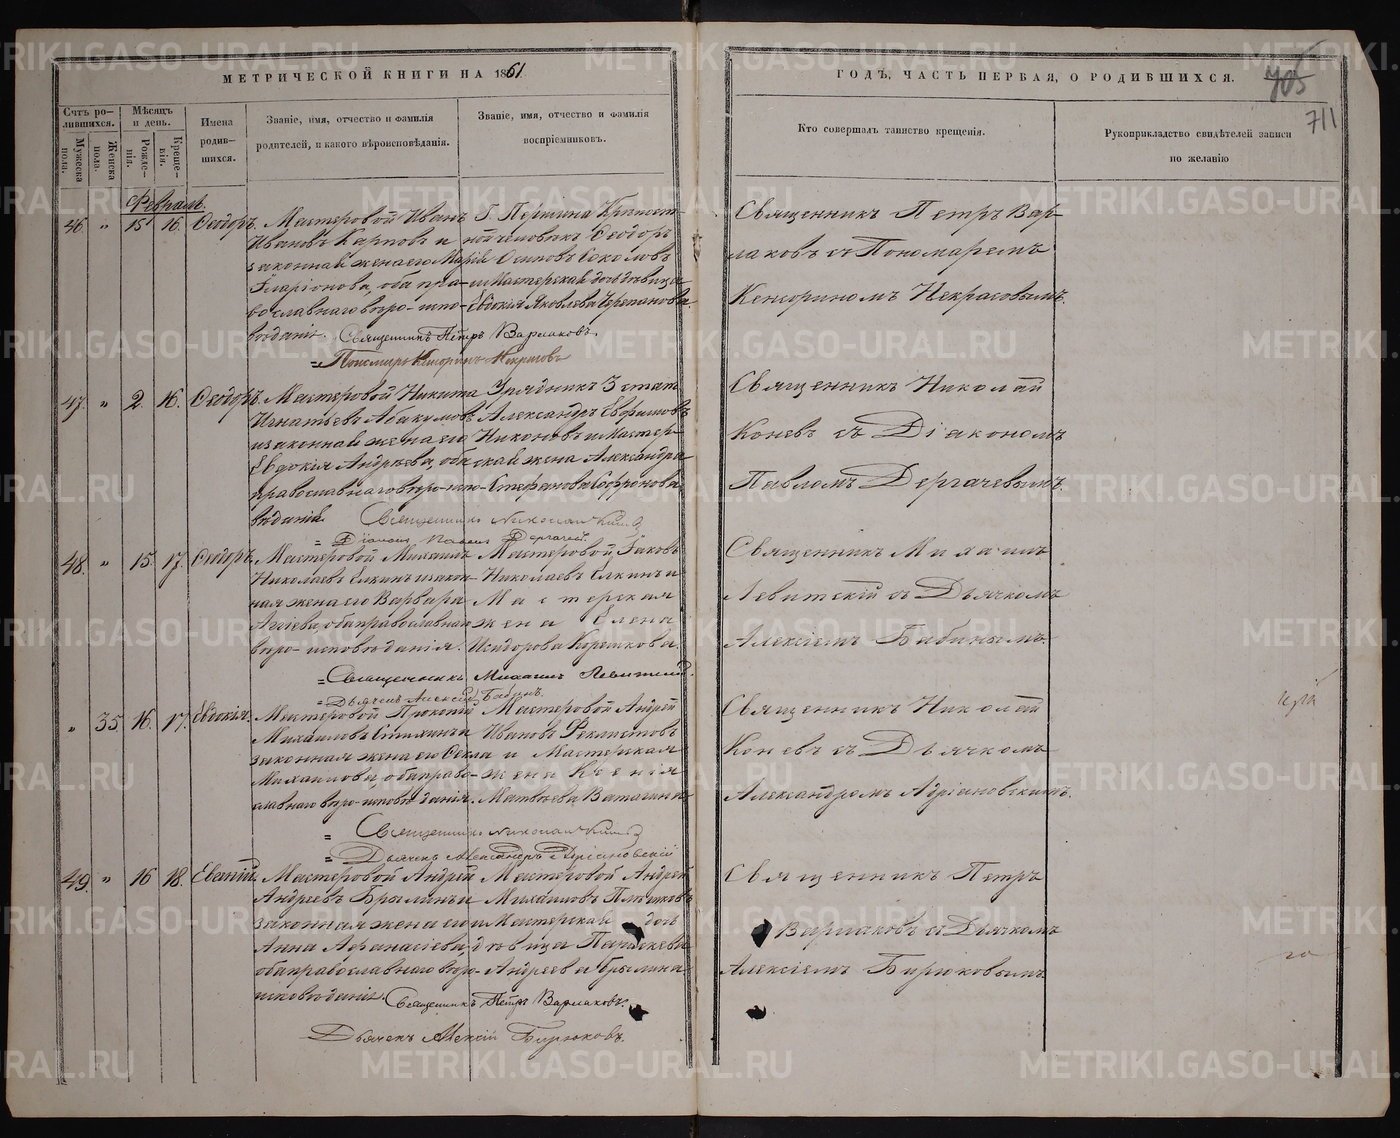 МЕТРИЧЕСКОЙ КНИГИ НА 1861
ГОДЪ, ЧАСТЬ ПЕРВАЯ, О РОДИВШИХСЯ.
705
711
Счтъ ро-
дившихся.
Мужеска пола.
Женска пола.
Мѣсяцъ и день.
Рожде-
нія.
Креще-
нія.
Имена
родив-
шихся.
Званіе, имя, отчество и фамилія
родителей, и какого вѣроисповѣданія.
Званіе, имя, отчество и фамилія
воспріемниковъ.
Кто совершалъ таинство крещенія.
Рукоприкладство свидѣтелей записи
по желанію
Февраль.
46. " 15 16. Ѳеодоръ.
Мастеровой Иванъ
Ивановъ Карповъ и
законная жена его Марія
Иларіонова, оба пра-
вославнаго вѣро-испо-
вѣданія.
Г. Першина Крѣпост-
ной человѣкъ Ѳеодоръ
Осиповъ Соколовъ
и Мастерская дочь дѣвица
Евдокія Яковлева Черепанова.
Священникъ Петръ Варлаковъ.
Пономарь Кенсоринъ Некрасовъ
Священникъ Петръ Вар-
лаковъ съ Пономаремъ
Кенсориномъ Некрасовымъ.
47. " 2. 16. Ѳеодоръ.
Мастеровой Никита
Игнатьевъ Абакумовъ
и законная жена его
Евдокія Андреева, оба
православнаго вѣро-испо-
вѣданія.
Урядникъ 3 стат
Александръ Евфимовъ
Никоновъ и Мастер-
ская жена Александра
Стефанова Софронова.
Священникъ Николай Коневъ
Діаконъ Павелъ Дергачевъ.
Священникъ Николай
Коневъ съ Діакономъ
Павломъ Дергачевымъ.
48. " 15. 17. Ѳеодоръ.
Мастеровой Михаилъ
Николаевъ Елкинъ и закон-
ная жена его Варвара
Аггіева, оба православнаго
вѣро-исповѣданія.
Мастеровой Іаковъ
Николаевъ Елкинъ и
Мастерская
жена Елена
Исидорова Корешкова.
Священникъ Михаилъ Левитскій.
Дьячекъ Алексій Бабинъ.
Священникъ Михаилъ
Левитскій съ Дьячкомъ
Алексіемъ Бабинымъ.
" 35. 16. 17. Евдокія.
Мастеровой Прокопій
Михаиловъ Стихинъ и
законная жена его Ѳекла
Михаилова, оба право-
славнаго вѣро-исповѣданія.
Мастеровой Андрей
Ивановъ Феклистовъ
и Мастерская
жена Ксенія
Матвѣева Ватагина.
Священникъ Николай Коневъ
Дьячекъ Александръ Адріановскій
Священникъ Николай
Коневъ съ Дьячкомъ
Александромъ Адріановскимъ.
49. " 16 18. Евгеній.
Мастеровой Андрей
Андреевъ Брылинъ и
законная жена его
Анна Аѳанасіева,
оба православнаго вѣро-
исповѣданія.
Мастеровой Андрей
Михаиловъ Плѣшковъ
и Мастерская дочь
дѣвица Параскева
Андреева Брылина.
Священникъ Петръ Варлаковъ.
Дьячекъ Алексій Бирюковъ.
Священникъ Петръ
Варлаковъ съ Дьячкомъ
Алексіемъ Бирюковымъ.
METRIKI.GASO-URAL.RU